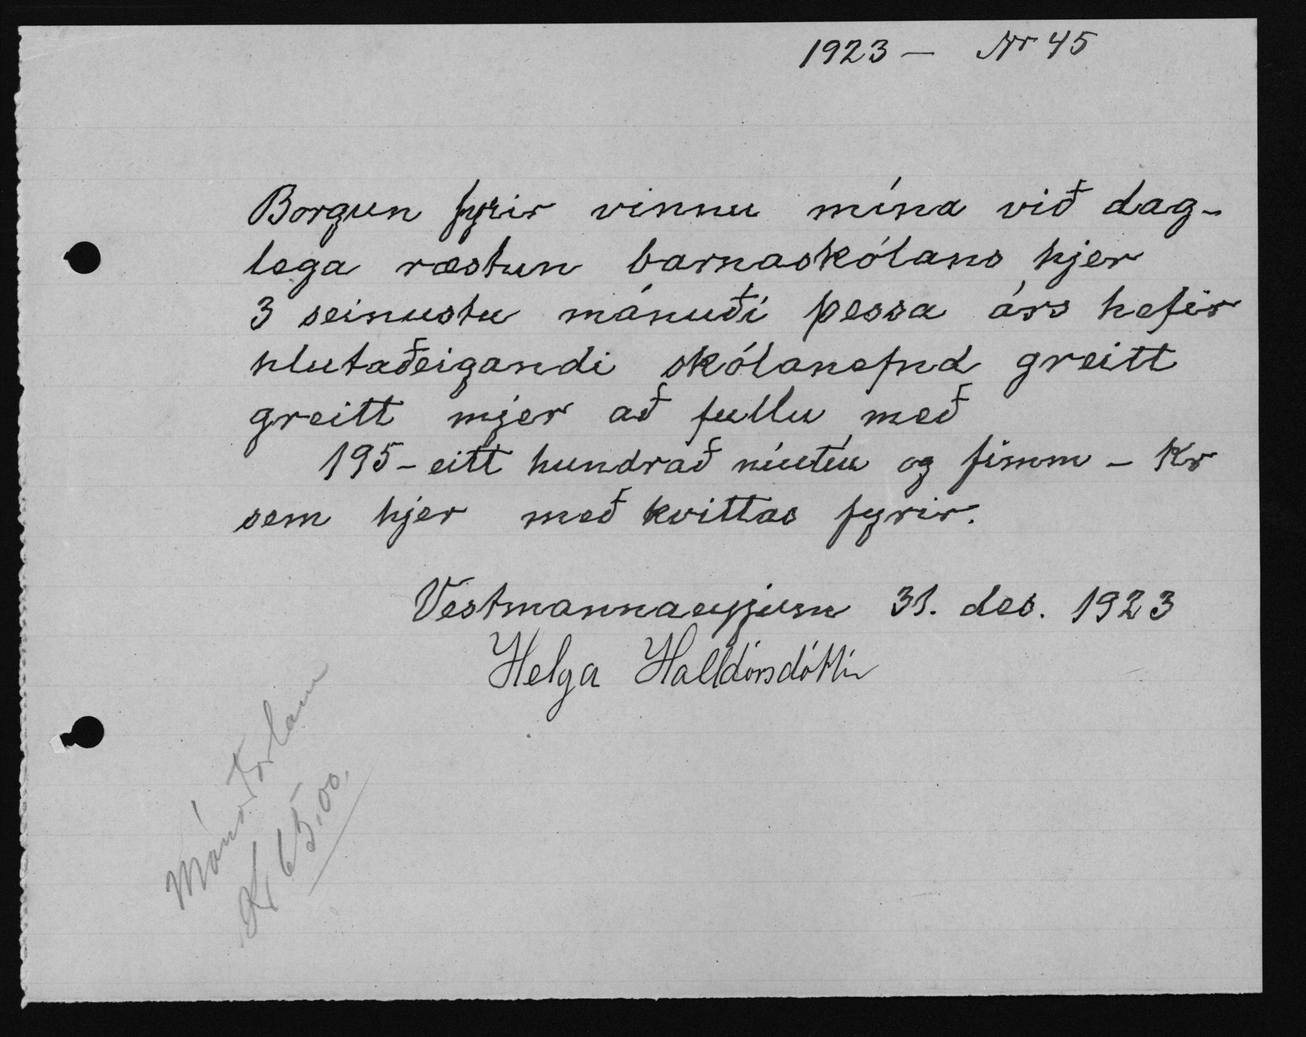 1923 — Nr 45
Borgun fyrir vinnu mína við dag-
lega ræstun barnaskólans hjer
3 seinustu mánuði þessa árs hefir
hlutaðeigandi skólanefnd greitt
greitt mjer að fullu með
195 – eitt hundrað níutíu og fimm – Kr
sem hjer með kvittas fyrir.
Vestmannaeyjum 31. des. 1923
Helga Halldórsdóttir
Mánaðarlaun
Kr 65.00.